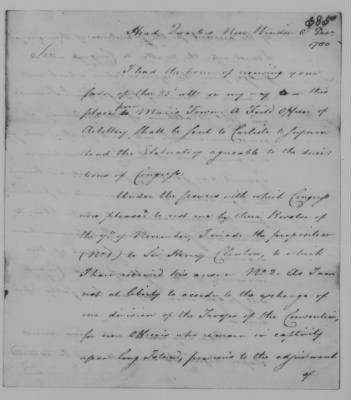 385
Head Quarters New Windsor 8 Decr
1780
Sir
I had the honor of receiving your
favr of the 25 ulto on my way to this
place from Morris Town. A Field Officer of
Artillery shall be sent to Carlisle to superin
tend the Elaboratory agreeable to the direc
tions of Congress.
Under the powers with which Congress
was pleased to vest me by their Resolve of
the 7th of November, I made the proposition
(No 1) to Sir Henry Clinton, to which
I have received his answer No 2. As I am
not at liberty to accede to the exchange of
one division of the Troops of the Convention,
for our Officers who remain in captivity
upon Long Island, previous to the adjustment
of